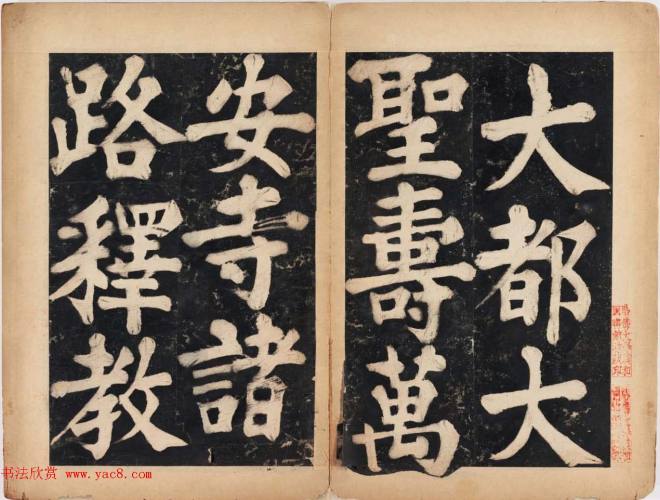 大都大
聖壽萬
安寺諸
路釋教
书法欣赏 www.yac8.com